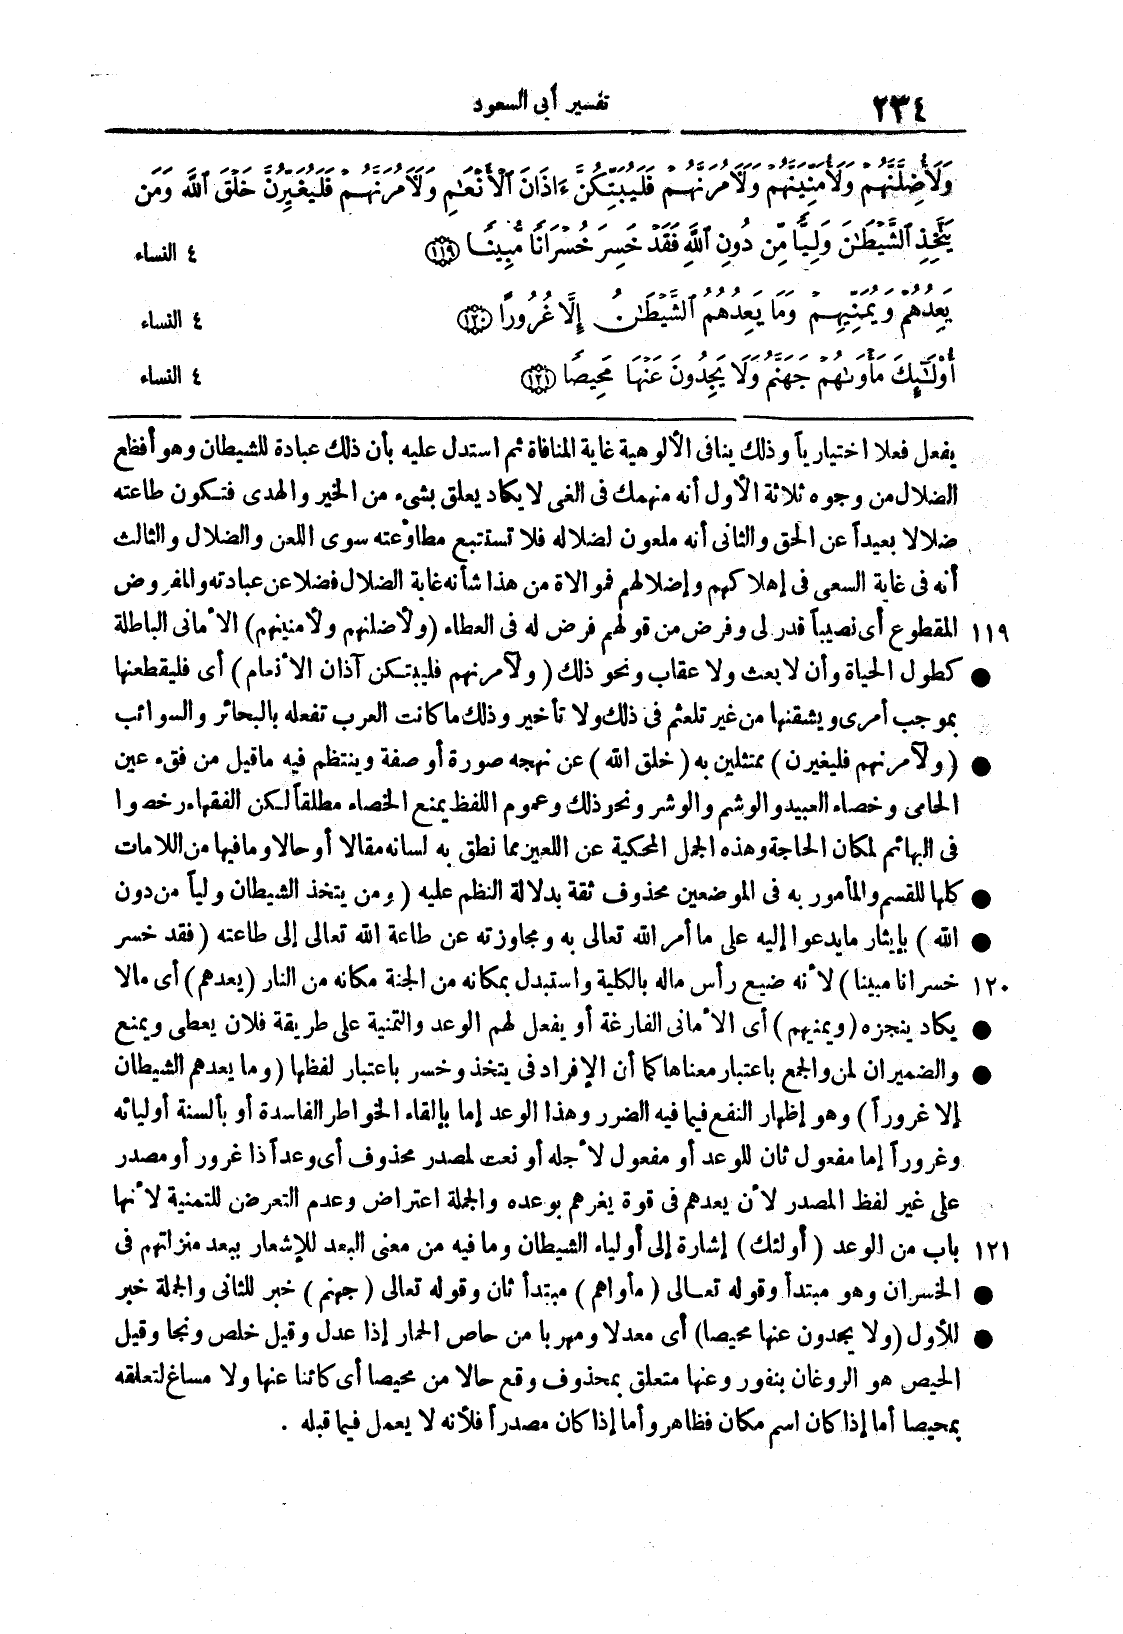 ٢٣٤ تفسير أبى السعود
وَلَأُضِلَّنَّهُمْ وَلَأُمَنِّيَنَّهُمْ وَلَآمُرَنَّهُمْ فَلَيُبَتِّكُنَّ ءَاذَانَ ٱلْأَنْعَٰمِ وَلَآمُرَنَّهُمْ فَلَيُغَيِّرُنَّ خَلْقَ ٱللَّهِ وَمَن
يَتَّخِذِ ٱلشَّيْطَٰنَ وَلِيًّا مِّن دُونِ ٱللَّهِ فَقَدْ خَسِرَ خُسْرَانًا مُّبِينًا ﴿١١٩﴾ ٤ النساء
يَعِدُهُمْ وَيُمَنِّيهِمْ وَمَا يَعِدُهُمُ ٱلشَّيْطَٰنُ إِلَّا غُرُورًا ﴿١٢٠﴾ ٤ النساء
أُوْلَٰٓئِكَ مَأْوَىٰهُمْ جَهَنَّمُ وَلَا يَجِدُونَ عَنْهَا مَحِيصًا ﴿١٢١﴾ ٤ النساء
يفعل فعلا اختيارياً وذلك ينافى الألوهية غاية المنافاة ثم استدل عليه بأن ذلك عبادة للشيطان وهو أفظع
الضلال من وجوه ثلاثة الأول أنه منهمك فى الغى لا يكاد يعلق بشىء من الخير والهدى فتكون طاعته
ضلالا بعيداً عن الحق والثانى أنه ملعون لضلاله فلا تستتبع مطاوعته سوى اللعن والضلال والثالث
أنه فى غاية السعى فى إهلاكهم وإضلالهم فموالاة من هذا شأنه غاية الضلال فضلا عن عبادته والمفروض
١١٩ المقطوع أى نصيباً قدر لى وفرض من قولهم فرض له فى العطاء (ولأضلنهم ولأمنينهم) الأمانى الباطلة
● كطول الحياة وأن لا بعث ولا عقاب ونحو ذلك (ولآمرنهم فليبتكن آذان الأنعام) أى فليقطعنها
بموجب أمرى ويشقنها من غير تلعثم فى ذلك ولا تأخير وذلك ما كانت العرب تفعله بالبحائر والسوائب
● (ولآمرنهم فليغيرن) ممتثلين به (خلق الله) عن نهجه صورة أو صفة وينتظم فيه ما قيل من فقء عين
الحامى وخصاء العبيد والوشم والوشر ونحو ذلك وعموم اللفظ يمنع الخصاء مطلقاً لكن الفقهاء رخصوا
فى البهائم لمكان الحاجة وهذه الجمل المحكية عن اللعين مما نطق به لسانه مقالا أو حالا وما فيها من اللامات
● كلها للقسم والمأمور به فى الموضعين محذوف ثقة بدلالة النظم عليه (ومن يتخذ الشيطان ولياً من دون
● الله) بإيثار ما يدعوا إليه على ما أمر الله تعالى به ومجاوزته عن طاعة الله تعالى إلى طاعته (فقد خسر
١٢٠ خسرانا مبينا) لأنه ضيع رأس ماله بالكلية واستبدل بمكانه من الجنة مكانه من النار (يعدهم) أى مالا
● يكاد ينجزه (ويمنيهم) أى الأمانى الفارغة أو يفعل لهم الوعد والتمنية على طريقة فلان يعطى ويمنع
● والضميران لمن والجمع باعتبار معناها كما أن الإفراد فى يتخذ وخسر باعتبار لفظها (وما يعدهم الشيطان
إلا غروراً) وهو إظهار النفع فيما فيه الضرر وهذا الوعد إما بإلقاء الخواطر الفاسدة أو بألسنة أوليائه
وغروراً إما مفعول ثان للوعد أو مفعول لأجله أو نعت لمصدر محذوف أى وعداً ذا غرور أو مصدر
على غير لفظ المصدر لأن يعدهم فى قوة يغرهم بوعده والجملة اعتراض وعدم التعرض للتمنية لأنها
١٢١ باب من الوعد (أولئك) إشارة إلى أولياء الشيطان وما فيه من معنى البعد للإشعار ببعد منزلتهم فى
● الخسران وهو مبتدأ وقوله تعالى (مأواهم) مبتدأ ثان وقوله تعالى (جهنم) خبر للثانى والجملة خبر
● للأول (ولا يجدون عنها محيصا) أى معدلا ومهربا من حاص الحمار إذا عدل وقيل خلص ونجا وقيل
الحيص هو الروغان بنفور وعنها متعلق بمحذوف وقع حالا من محيصا أى كائنا عنها ولا مساغ لتعلقه
بمحيصا أما إذا كان اسم مكان فظاهر وأما إذا كان مصدراً فلأنه لا يعمل فيما قبله .